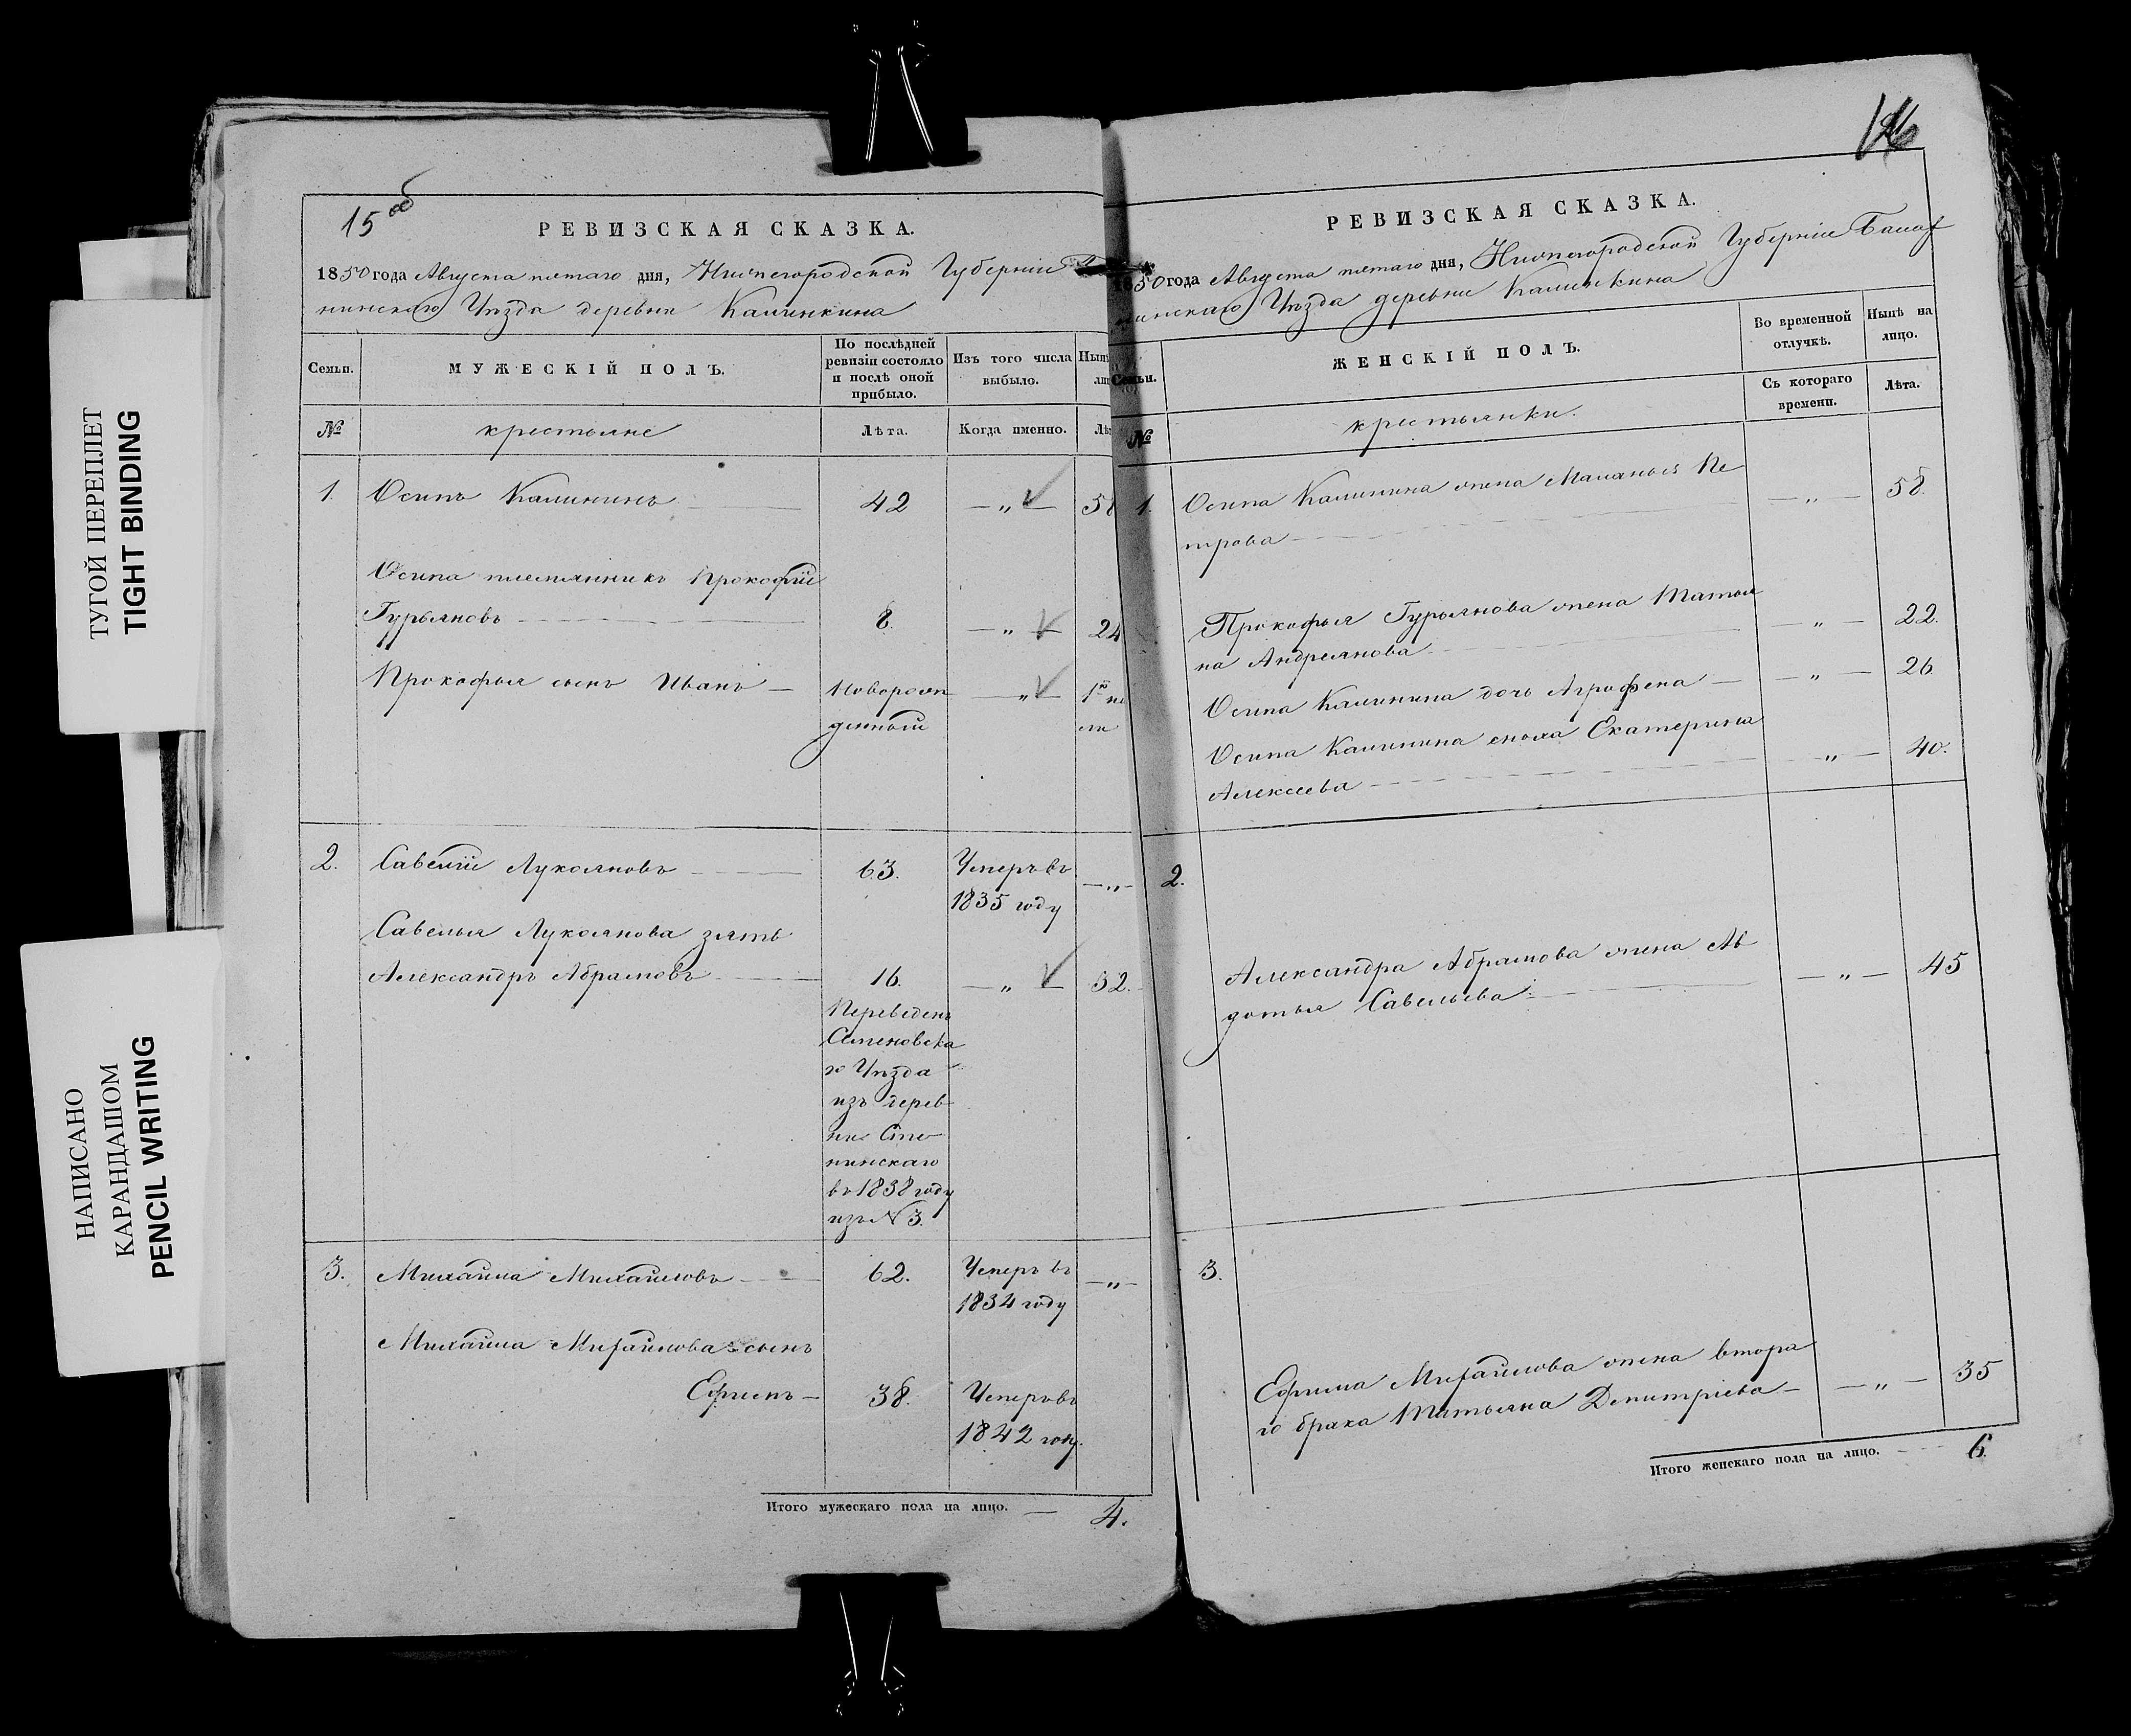 ТУГОЙ ПЕРЕПЛЕТ
TIGHT BINDING
НАПИСАНО
КАРАНДАШОМ
PENCIL WRITING
15 об
РЕВИЗСКАЯ СКАЗКА.
1850 года Августа пятаго дня, Нижегородской Губерніи
нинскаго Уѣзда деревни Калинкина
Семьи.
МУЖЕСКІЙ ПОЛЪ.
По послѣдней
ревизіи состояло
и послѣ оной
прибыло.
Изъ того числа
выбыло.
Нынѣ
№
крестьяне
Лѣта.
Когда именно.
1. Осипъ Калининъ 42 — „ — 58
Осипа племянникъ Прокофій
Гурьяновъ 8. — „ — 24
Прокофья сынъ Иванъ — Новорож — „ — 1
денный
2. Савелій Лукояновъ 63. Умеръ въ — „ —
1835 году
Савелья Лукоянова зять
Александръ Абрамовъ 16. — „ — 32.
Переведенъ
Семеновска
го Уѣзда
изъ дерев
ни
нинскаго
въ 1838 году
изъ № 3.
3. Михайла Михайловъ 62. Умеръ въ — „ —
1834 году
Михайла Михайлова сынъ
Ефимъ — 38. Умеръ въ
1842 году.
Итого мужескаго пола на лицо. — 4.
РЕВИЗСКАЯ СКАЗКА.
1850 года Августа пятаго дня, Нижегородской Губерніи Балах
нинскаго Уѣзда деревни Калинкина
Семьи.
ЖЕНСКІЙ ПОЛЪ.
Во временной
отлучкѣ.
Нынѣ на
лицо.
Съ котораго
времени.
Лѣта.
№
крестьянки.
1. Осипа Калинина жена Маланья Пе — „ — 58.
трова
Прокофья Гурьянова жена Татья — „ — 22.
на Андреянова
Осипа Калинина дочь Аграфена — — „ — 26
Осипа Калинина сноха Екатерина „ — 40.
Алексеева
2.
Александра Абрамова жена Ав — „ — 45
дотья Савельева
3.
Ефима Михайлова жена втора
го брака Татьяна Димитріева — — „ — 35
Итого женскаго пола на лицо. 6.